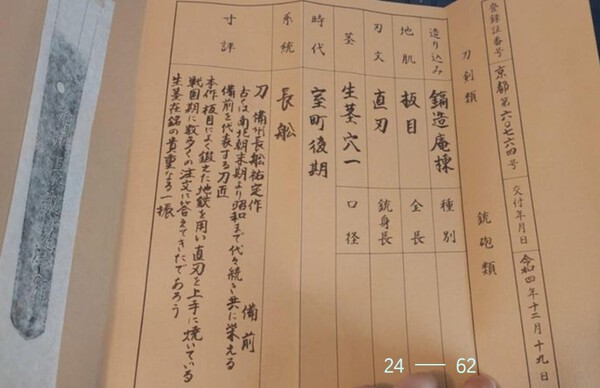 登録証番号 京都 第六〇七六四号 交付年月日 令和四年十二月十九日
刀剣類 銃砲類
造り込み 鎬造庵棟 種別
地肌 板目 全長
刃文 直刃 銃身長
茎 生茎穴一 口径
時代 室町後期
系統 長船
寸評 刀 備州長船祐定作 備前
古くは南北朝末期より昭和まで代々続き共に栄える
備前を代表する刀匠
本作板目によく鍛えた地鉄を用い直刃を上手に焼いている
戦国期に数多くの注文に答えてきたであろう
生茎在銘の貴重なる一振
24 — 62